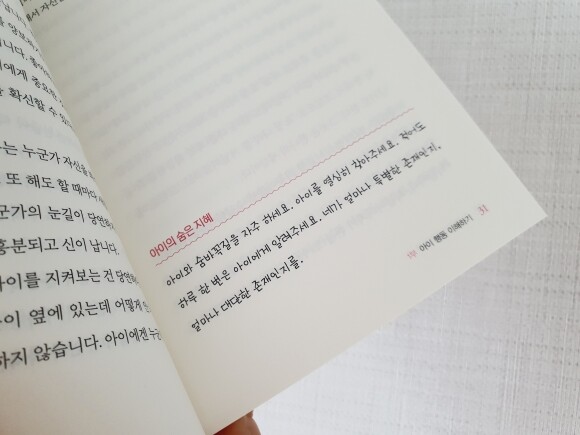 에서 자신을
를 양보하
니다. 좋아
에게 중요한
을 확신할 수 있
는 누군가 자신을
또 해도 할 때마다
군가의 눈길이 당연하
흥분되고 신이 납니다.
아이를 지켜보는 건 당연하
이 옆에 있는데 어떻게
하지 않습니다. 아이에겐 누군
아이의 숨은 지혜
아이와 숨바꼭질을 자주 하세요. 아이를 열심히 찾아주세요. 적어도
하루 한 번은 아이에게 알려주세요. 네가 얼마나 특별한 존재인지,
얼마나 대단한 존재인지를.
1부 아이 행동 이해하기 31